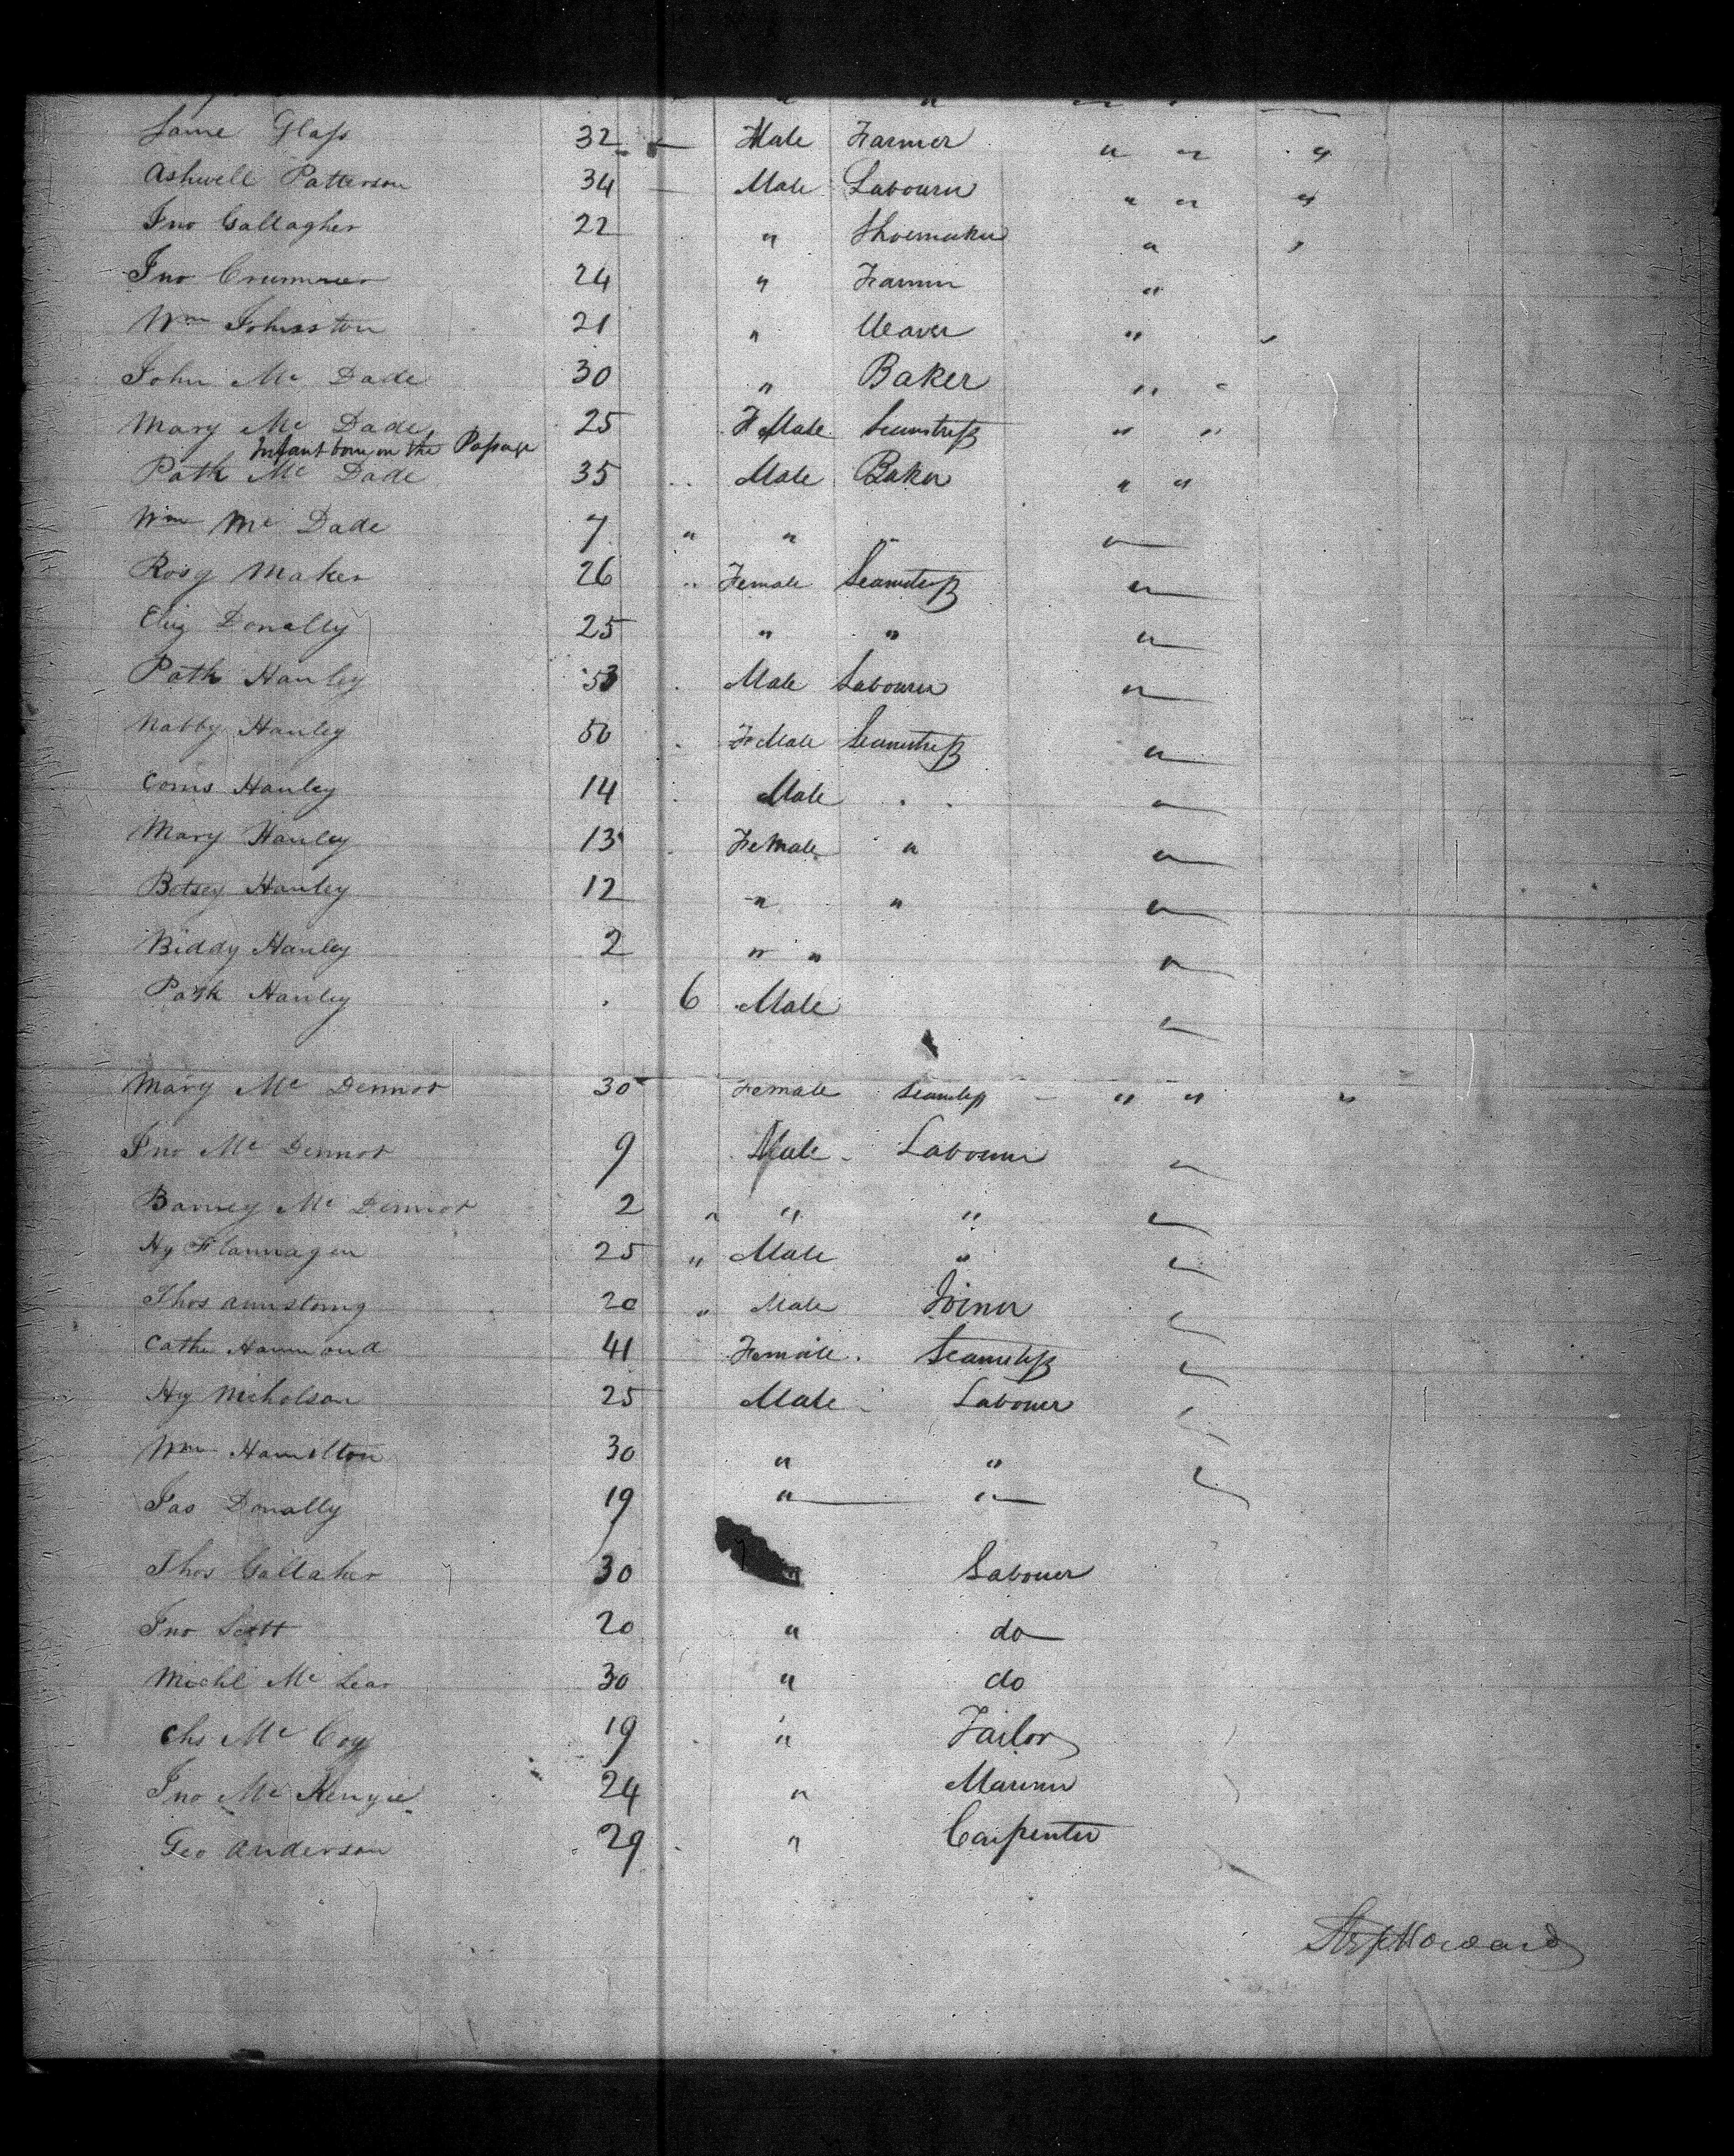 Jame Glass 32 — Male Farmer " " "
Ashwell Patterson 34 — Male Labourer " " "
Jno Gallagher 22 " Shoemaker " "
Jno 24 " Farmer "
Wm Johnston 21 " Weaver " "
John Mc Dade 30 " Baker " "
Mary Mc Dade 25 FeMale Seamstress " "
Infant born on the Passage
Patk Mc Dade 35 Male Baker " "
Wm Mc Dade 7 " " " "
Rosy Maker 26 " Female Seamstress "
Eliz Donally 25 " " "
Patk Hanley 53 Male Labourer "
Nabby Hanley 50 FeMale Seamstress "
Hanley 14 Male "
Mary Hanley 13 Female " "
Betsey Hanley 12 " " "
Biddy Hanley 2 " " "
Patk Hanley 6 Male "
Mary Mc Dermot 30 Female Seamstress " " "
Jno Mc Dermot 9 Male Labourer "
Barney Mc Dermot 2 " " " "
Hy Flannagen 25 " Male " "
Thos Armstrong 20 " Male Joiner "
Cathe Hammond 41 Female Seamstress "
Hy Nicholson 25 Male Labouer "
Wm Hamilton 30 " " "
Jas Donally 19 " "
Thos Gallaher 30 " Labouer
Jno Scott 20 " do
Michl Mc 30 " do
Chs Mc Coy 19 " Tailor
Jno Mc Kenzie 24 " Mariner
Geo Anderson 29 " Carpenter
Howard